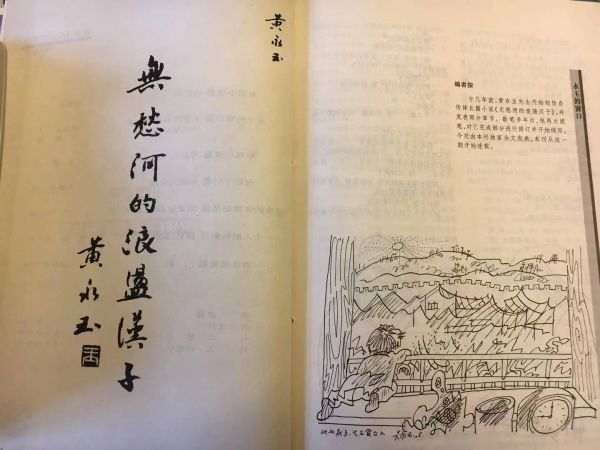 無愁河的浪盪漢子
黄永玉
黄永玉
永玉的窗口
编者按
十几年前，黄永玉先生开始创作自
传体长篇小说《无愁河的浪荡汉子》，并
发表部分章节。歇笔多年后，他再次提
笔，对已完成部分进行修订并开始续写。
今交由本刊独家全文发表。本刊从这一
期开始连载。